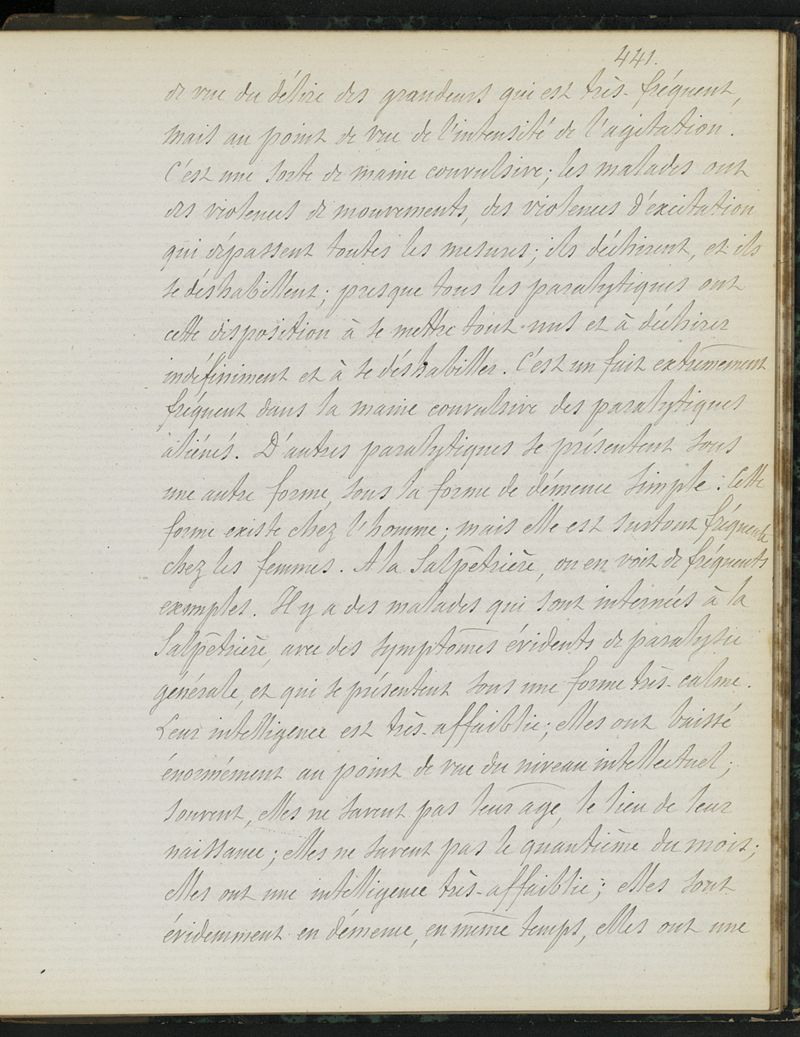 441.
de vue du délire des grandeurs qui est très-fréquent,
mais au point de vue de l'intensité de l'agitation.
C'est une sorte de manie convulsive; les malades ont
des violences de mouvements, des violences d'excitation
qui dépassent toutes les mesures; ils déchirent, et ils
se déshabillent; presque tous les paralytiques ont
cette disposition à se mettre tout-nus et à déchirer
indéfiniment et à se déshabiller. C'est un fait extrêmement
fréquent dans la manie convulsive des paralytiques
aliénés. D'autres paralytiques se présentent sous
une autre forme, sous la forme de démence simple. Cette
forme existe chez l'homme; mais elle est surtout fréquente
chez les femmes. A la Salpêtrière, on en voit de fréquents
exemples. Il y a des malades qui sont internées à la
Salpêtrière, avec des symptômes évidents de paralysie
générale, et qui se présentent sous une forme très-calme.
Leur intelligence est très-affaiblie; elles ont baissé
énormément au point de vue du niveau intellectuel;
souvent, elles ne savent pas leur âge, le lieu de leur
naissance; elles ne savent pas le quantième du mois;
elles ont une intelligence très-affaiblie; elles sont
évidemment en démence, en même temps, elles ont une